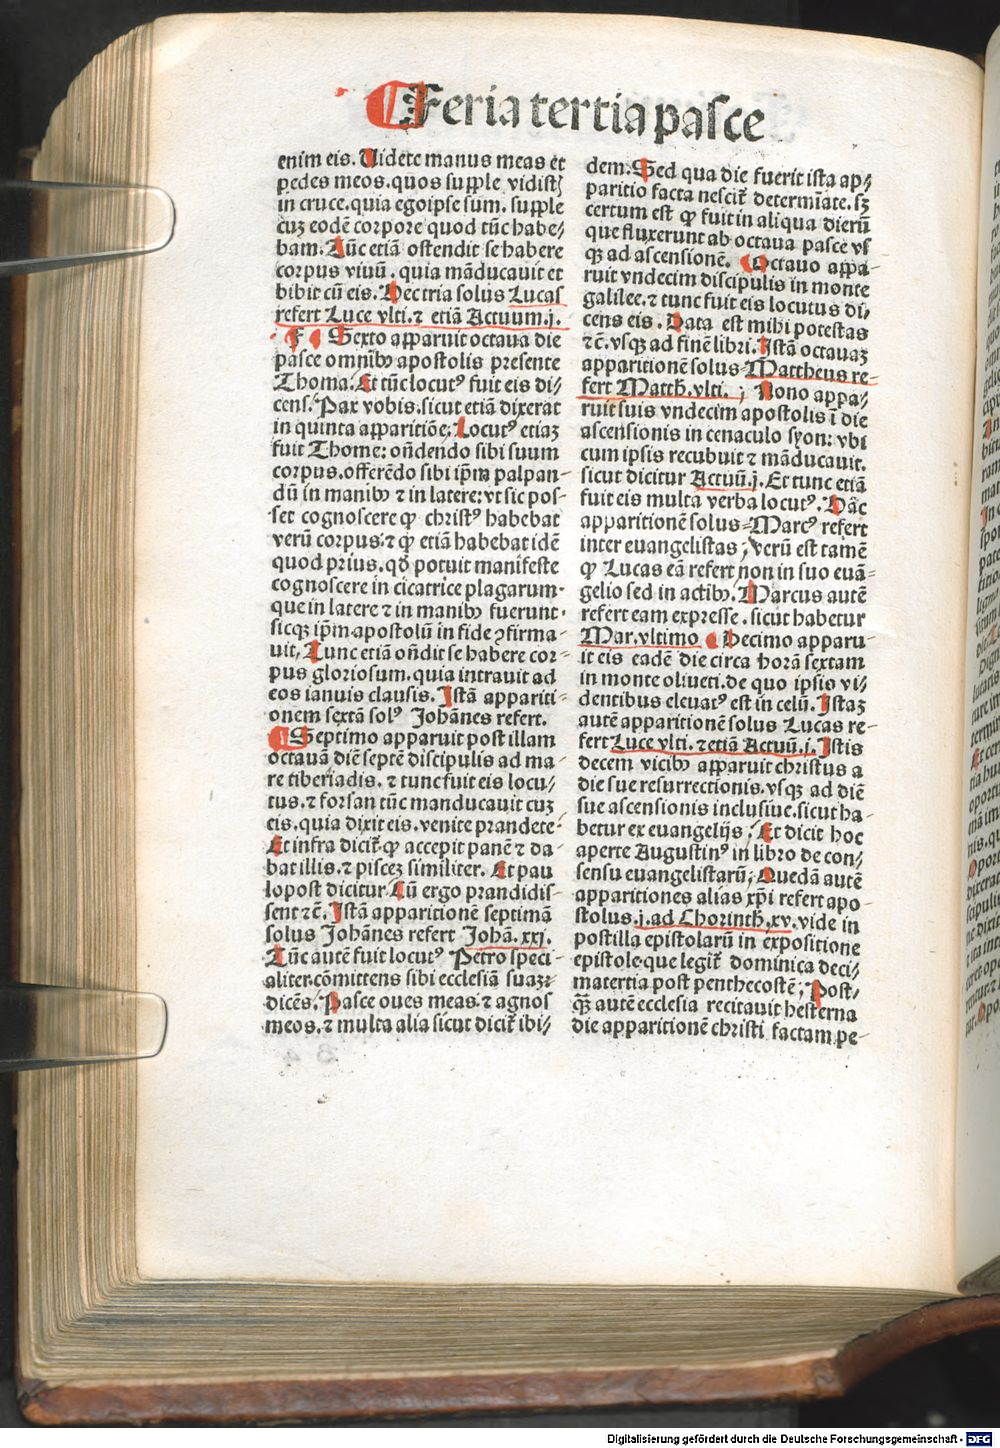 Feria tertia pasce
enim eis. Uidete manus meas et
pedes meos. quos supple vidistꝭ
in cruce. quia ego ipse sum. supple
cuȝ eodē corpore quod tūc habe⸗
bam. Tūc etiā ostendit se habere
corpus viuū. quia māducauit et
bibit cū eis. Hec tria solus Lucas
refert Luce vlti. ⁊ etiā Actuum. j.
Sexto apparuit octaua die
pasce omnibꝰ apostolis presente
Thoma. Et tūc locutꝰ fuit eis di⸗
cens. Pax vobis. sicut etiā dixerat
in quinta apparitiōe; Locutꝰ etiaȝ
fuit Thome: oñdendo sibi suum
corpus. offerēdo sibi ip̄m palpan⸗
dū in manibꝰ ⁊ in latere: vt sic pos⸗
set cognoscere ꝙ christꝰ habebat
verū corpus. ⁊ ꝙ etiā habebat idē
quod prius. qđ potuit manifeste
cognoscere in cicatrice plagarum.
que in latere ⁊ in manibꝰ fuerunt.
sicqꝫ ip̄m apostolū in fide ꝯfirma⸗
uit, Tunc etiā oñdit se habere cor⸗
pus gloriosum. quia intrauit ad
eos ianuis clausis. Istā appariti⸗
onem sextā solꝰ Johānes refert.
Septimo apparuit post illam
octauā diē septē discipulis ad ma⸗
re tiberiadis. ⁊ tunc fuit eis locu⸗
tus. ⁊ forsan tūc manducauit cuȝ
eis. quia dixit eis. venite prandete⸗
Et infra dicit̄ ꝙ accepit panē ⁊ da⸗
bat illis. ⁊ pisceȝ similiter. Et pau
lo post dicitur Cū ergo prandidis⸗
sent ⁊c̄. Istā apparitionē septimā
solus Johānes refert Johā. xxj.
Tūc autē fuit locutꝰ Petro speci⸗
aliter. cōmittens sibi ecclesiā suaȝ:
dicēs, Pasce oues meas. ⁊ agnos
meos. ⁊ multa alia sicut dicit̄ ibi⸗
dem. Sed qua die fuerit ista ap⸗
paritio facta nescit̄ determiate. sȝ
certum est ꝙ fuit in aliqua dierū
que fluxerunt ab octaua pasce vsꝫ
qꝫ ad ascensionē. Octauo appa⸗
ruit vndecim discipulis in monte
galilee. ⁊ tunc fuit eis locutus di⸗
cens eis. Data est mihi potestas
⁊c̄. vsqꝫ ad finē libri. Istā octauaȝ
apparitionē solus Mattheus re⸗
fert Matth. vlti. ; Nono appa⸗
ruit suis vndecim apostolis ī die
ascensionis in cenaculo syon: vbi
cum ipsis recubuit ⁊ māducauit.
sicut dicitur Actuū. j. Et tunc etiā
fuit eis multa verba locutꝰ. Hāc
apparitionē solus Marcꝰ refert
inter euangelistas; verū est tamē
ꝙ Lucas eā refert non in suo euā⸗
gelio sed in actibꝰ. Marcus autē
refert eam expresse. sicut habetur
Mar. vltimo Decimo apparu⸗
it eis eadē die circa horā sextam
in monte oliueti. de quo ipsis vi⸗
dentibus eleuatꝰ est in celū. Istaȝ
autē apparitionē solus Lucas re⸗
fert Luce vlti. ⁊ etiā Actuū. j. Istis
decem vicibꝰ apparuit christus a
die sue resurrectionis. vsqꝫ ad diē
sue ascensionis inclusiue. sicut ha⸗
betur ex euangelijs; Et dicit hoc
aperte Augustinꝰ in libro de con⸗
sensu euangelistarū; Quedā autē
apparitiones alias xp̄i refert apo⸗
stolus. j. ad Chorinth. xv. vide in
postilla epistolarū in expositione
epistole. que legit̄ dominica deci⸗
matertia post penthecostē; Post⸗
qꝫ autē ecclesia recitauit hesterna
die apparitionē christi factam pe⸗
Digitalisierung gefördert durch die Deutsche Forschungsgemeinschaft - DFG